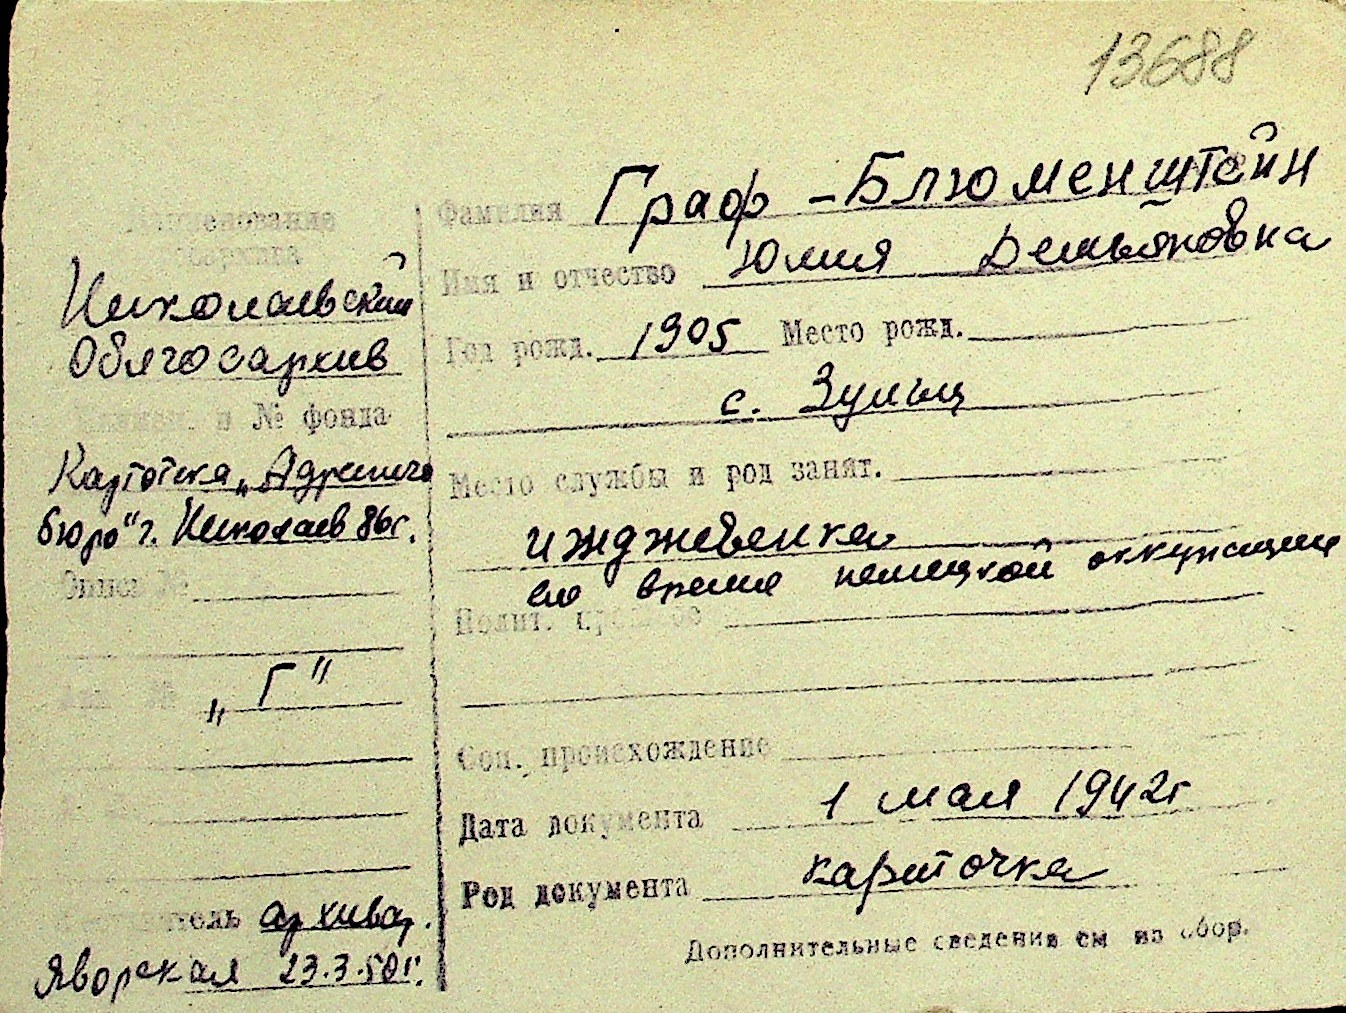 13688
Наименование
госархива
Николаевский
Облгосархив
и № фонда
Картотека „Адресного
бюро" г. Николаев 86г.
Опись №
„Г"
архивар.
Яворская 23.3.50г.
Фамилия Граф-Блюменштейн
Имя и отчество Юлия Демьяновка
Год рожд. 1905 Место рожд.
с. Зульц
Место службы и род занят.
иждживенка
во время немецкой оккупации
Полит.
Соц. происхождение
Дата документа 1 мая 1942г
Род документа карточка
Дополнительные сведения см на обор.